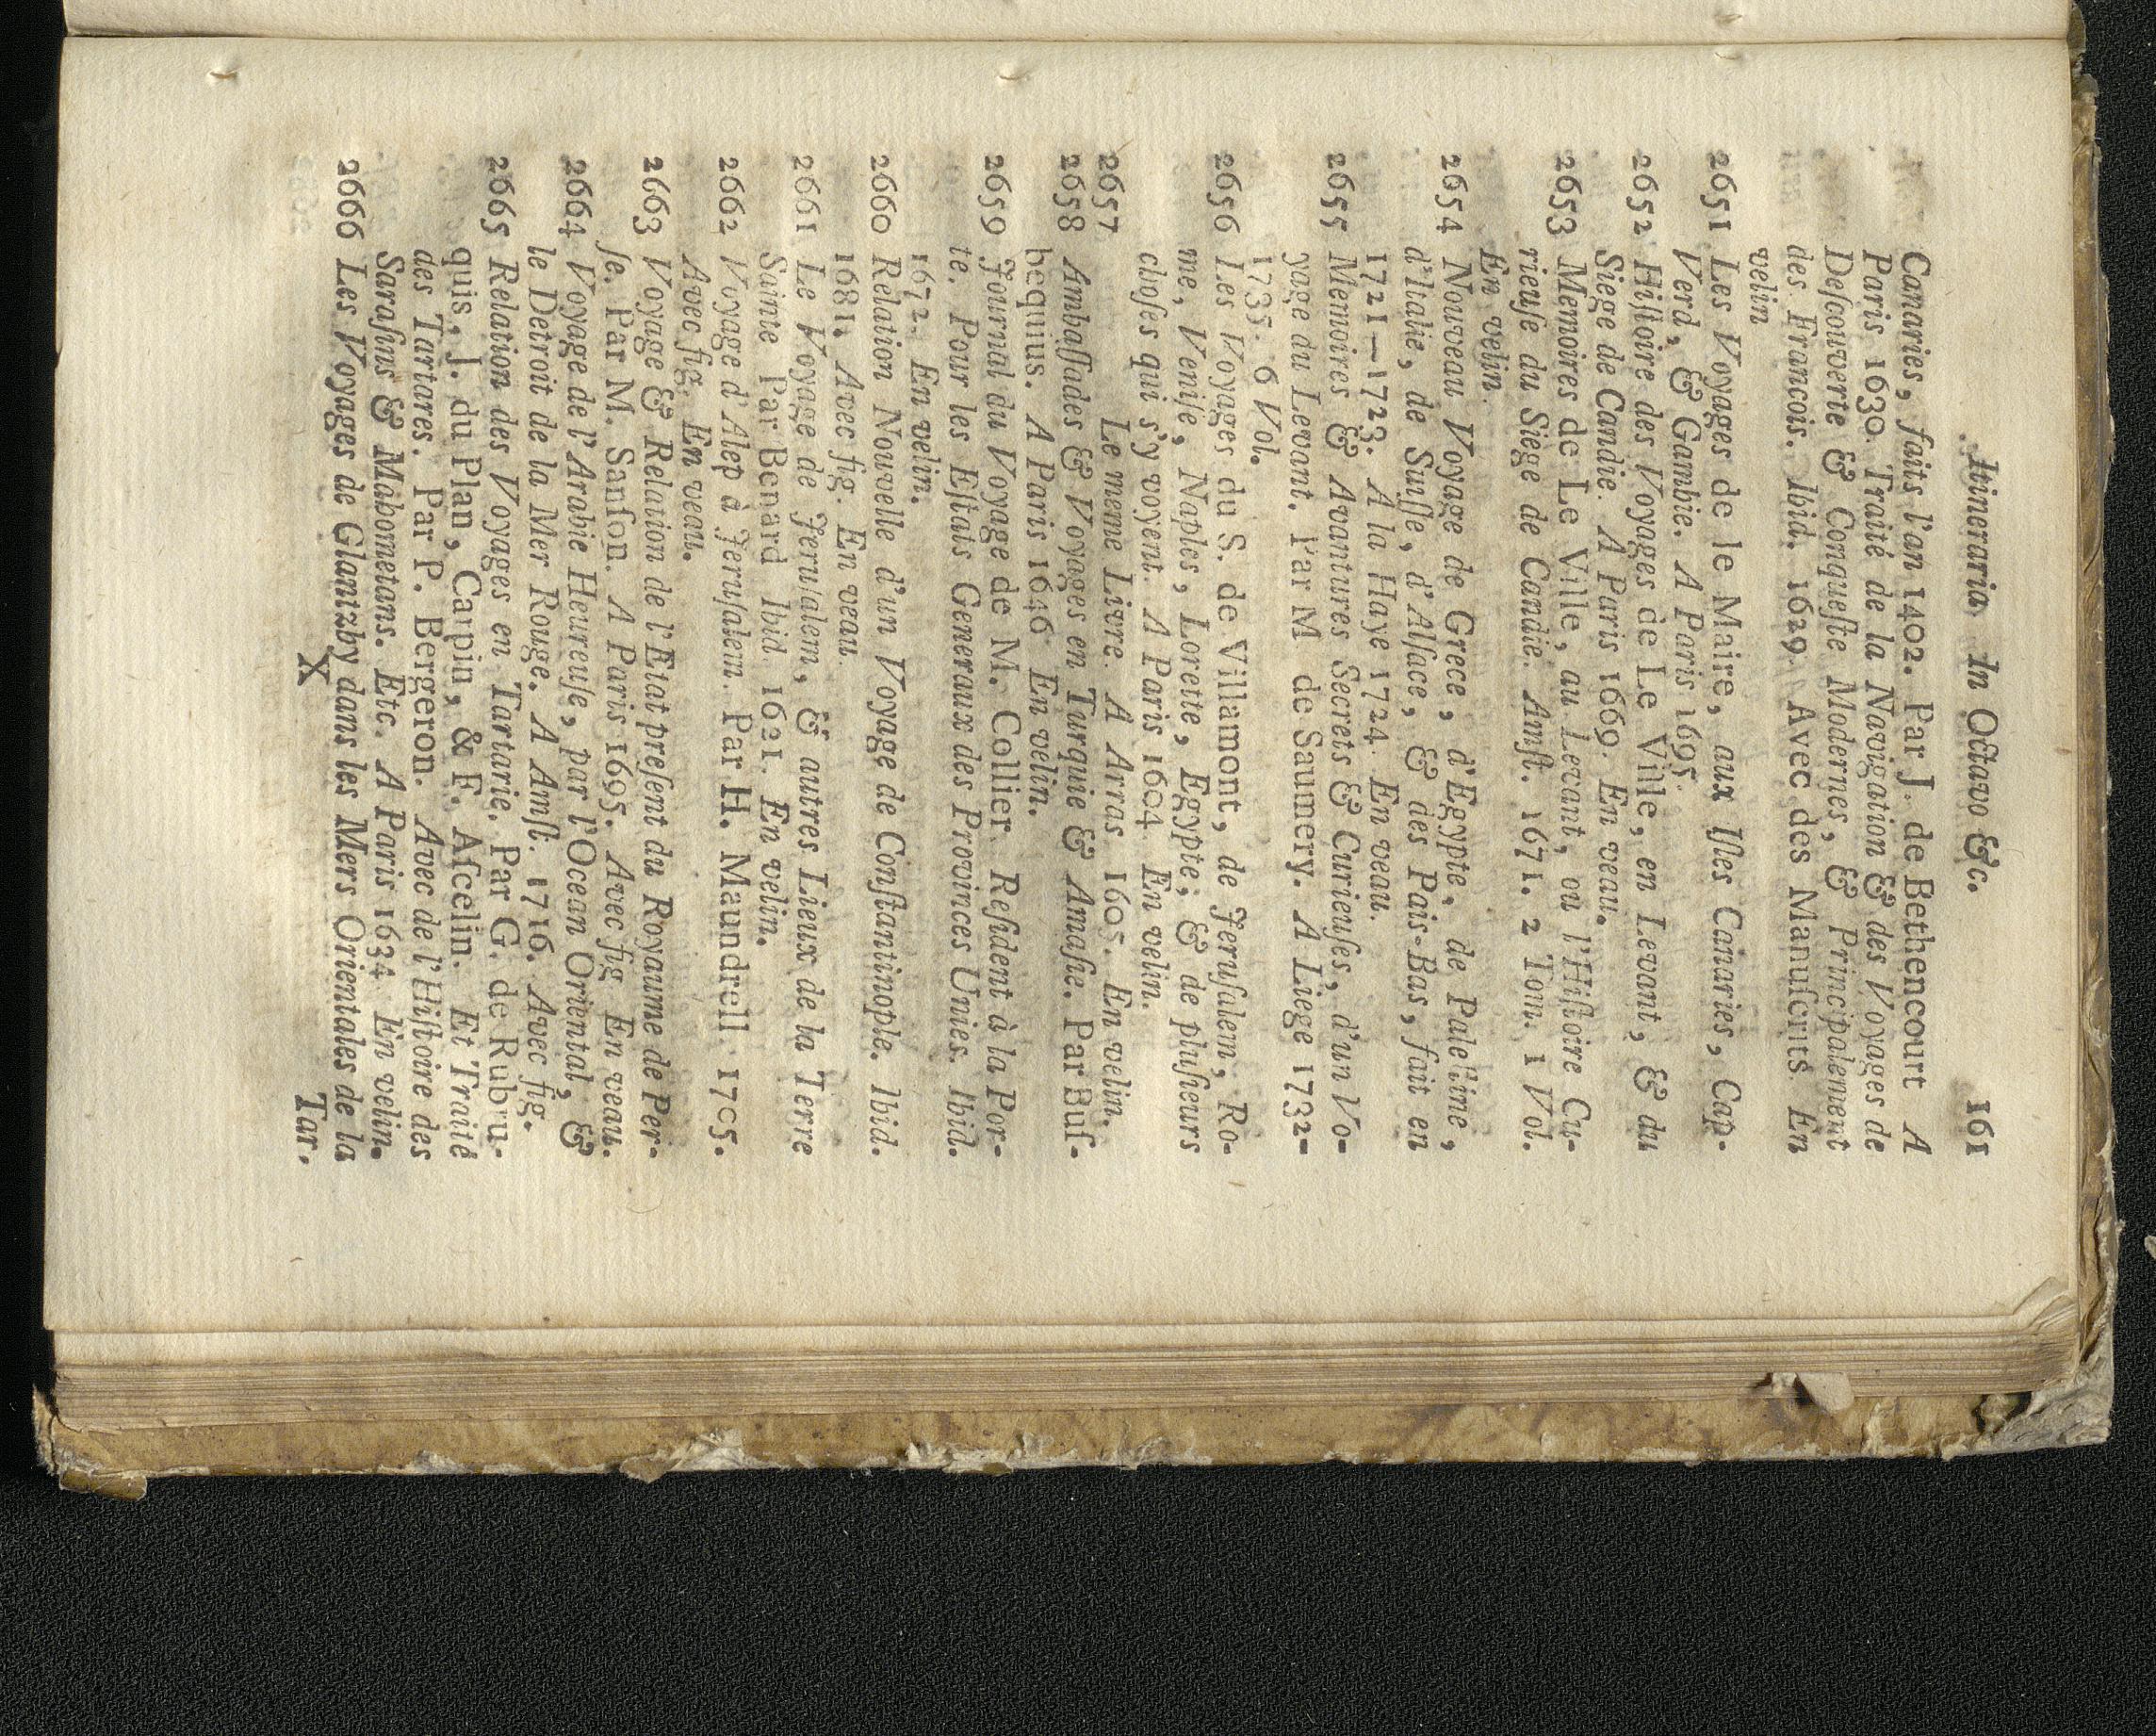 Itineraria In Octavo &c. 161
Canaries, faits l'an 1402. Par J. de Bethencourt A
Paris 1630. Traité de la Navigation & des Voyages de
Deſcouverte & Conqueſte Modernes, & Principalement
des Francois. Ibid. 1629. Avec des Manuſcrits En
velin
2651 Les Voyages de le Maire, aux Iſles Canaries, Cap-
Verd, & Gambie. A Paris 1695.
2652 Hiſtoire des Voyages de Le Ville, en Levant, & du
Siege de Candie. A Paris 1669. En veau.
2653 Memoires de Le Ville, au Levant, ou l'Hiſtoire Cu-
rieuſe du Siège de Candie. Amſt. 1671. 2 Tom. 1 Vol.
En velin.
2654 Nouveau Voyage de Grece, d'Egypte, de Paleſtine,
d'Italie, de Suiſſe, d'Alſace, & des Pais-Bas, fait en
1721—1723. A la Haye 1724. En veau.
2655 Memoires & Avantures Secrets & Curieuſes, d'un Vo-
yage du Levant. Par M. de Saumery. A Liege 1732-
1735. 6 Vol.
2656 Les Voyages du S. de Villamont, de Jeruſalem, Ro-
me, Veniſe, Naples, Lorette, Egypte, & de pluſieurs
choſes qui s'y voyent. A Paris 1604. En velin.
2657 Le meme Livre. A Arras 1605. En velin.
2658 Ambaſſades & Voyages en Turquie & Amaſie. Par Buſ-
bequius. A Paris 1646 En velin.
2659 Journal du Voyage de M. Collier Reſident à la Por-
te. Pour les Eſtats Generaux des Provinces Unies. Ibid.
1672. En velin.
2660 Relation Nouvelle d'un Voyage de Conſtantinople. Ibid.
1681. Avec fig. En veau.
2661 Le Voyage de Jeruſalem, & autres Lieux de la Terre
Sainte Par Benard Ibid. 1621. En velin.
2662 Voyage d'Alep à Jeruſalem. Par H. Maundrell 1705.
Avec fig. En veau.
2663 Voyage & Relation de l'Etat preſent du Royaume de Per-
ſe. Par M. Sanſon. A Paris 1695. Avec fig En veau.
2664 Voyage de l'Arabie Heureuſe, par l'Ocean Oriental, &
le Detroit de la Mer Rouge. A Amſt. 1716. Avec fig.
2665 Relation des Voyages en Tartarie. Par G. de Rubru-
quis, J. du Plan, Carpin, & F. Aſcelin. Et Traité
des Tartares. Par P. Bergeron. Avec de l'Hiſtoire des
Saraſins & Mahometans. Etc. A Paris 1634. En velin.
2666 Les Voyages de Glantzby dans les Mers Orientales de la
X Tar.